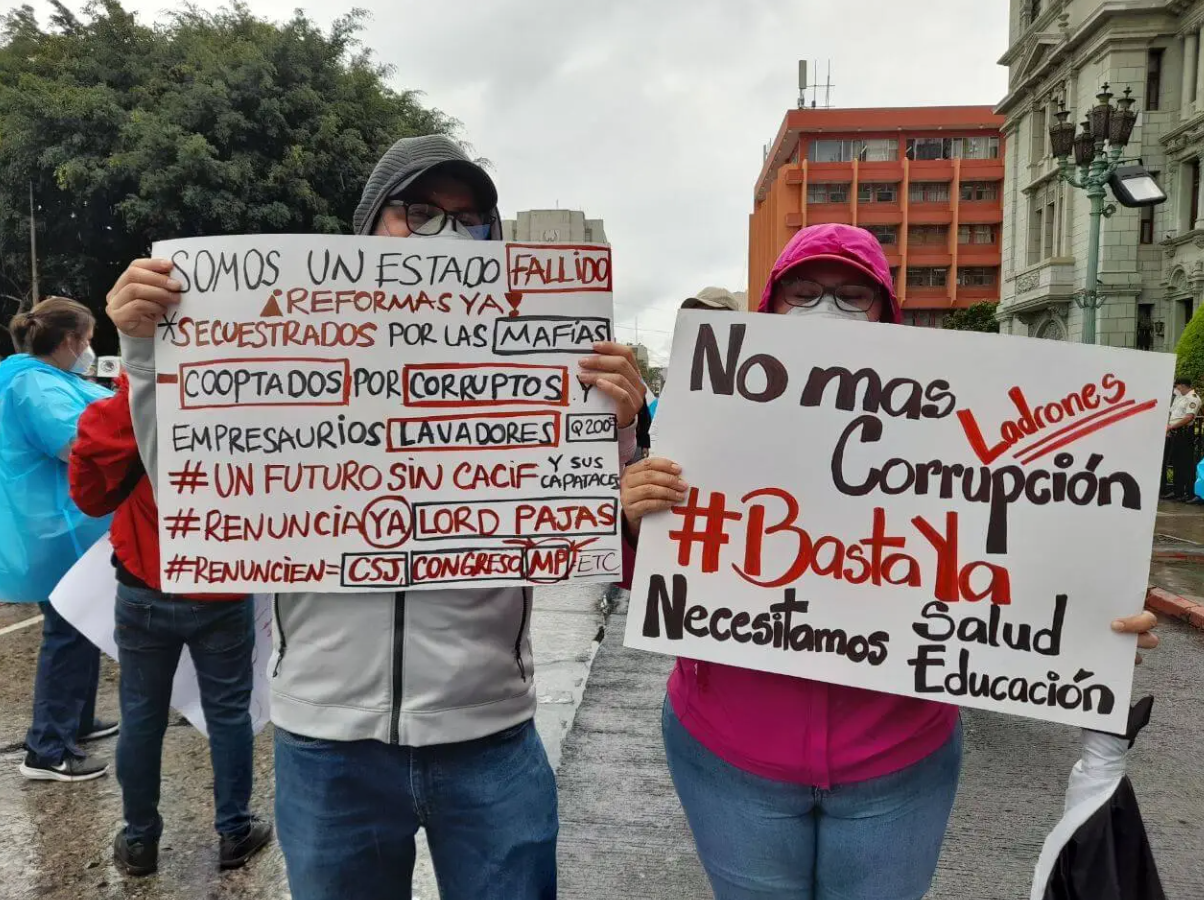 SOMOS UN ESTADO FALLIDO
¡REFORMAS YA!
*SECUESTRADOS POR LAS MAFIAS
COOPTADOS POR CORRUPTOS Y
EMPRESAURIOS LAVADORES Q200
#UN FUTURO SIN CACIF Y SUS CAPATACES
#RENUNCIA YA LORD PAJAS
#RENUNCIEN= CSJ, CONGRESO MP ETC
No mas Ladrones
Corrupción
#BastaYa
Necesitamos Salud
Educación